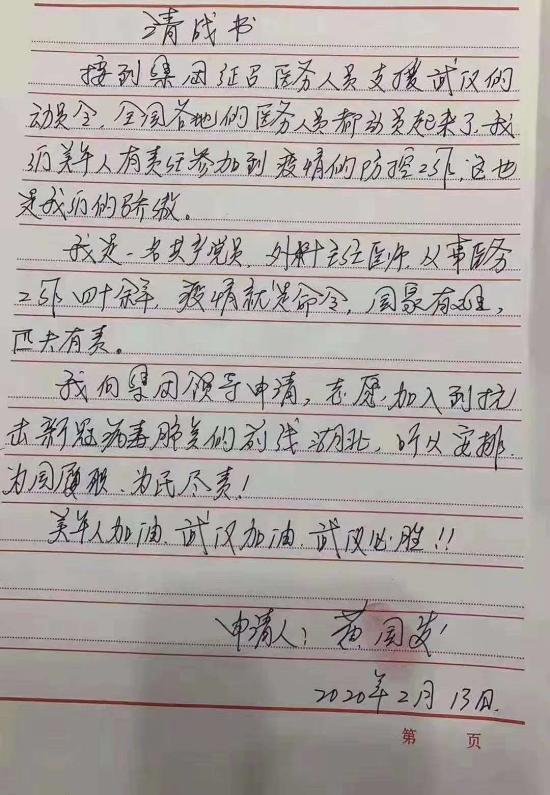 请战书
接到集团征召医务人员支援武汉的
动员令，全国各地的医务人员都动员起来了，我
们美年人有责任参加到疫情的防控工作，这也
是我们的骄傲。
我是一名共产党员，外科主任医师，从事医务
工作四十余年，疫情就是命令，国家有难，
匹夫有责。
我向集团领导申请，志愿加入到抗
击新冠病毒肺炎的前线湖北，听从安排，
为国履职、为民尽责！
美年人加油、武汉加油、武汉必胜！！
申请人：黄国发
2020年2月13日.
第 页